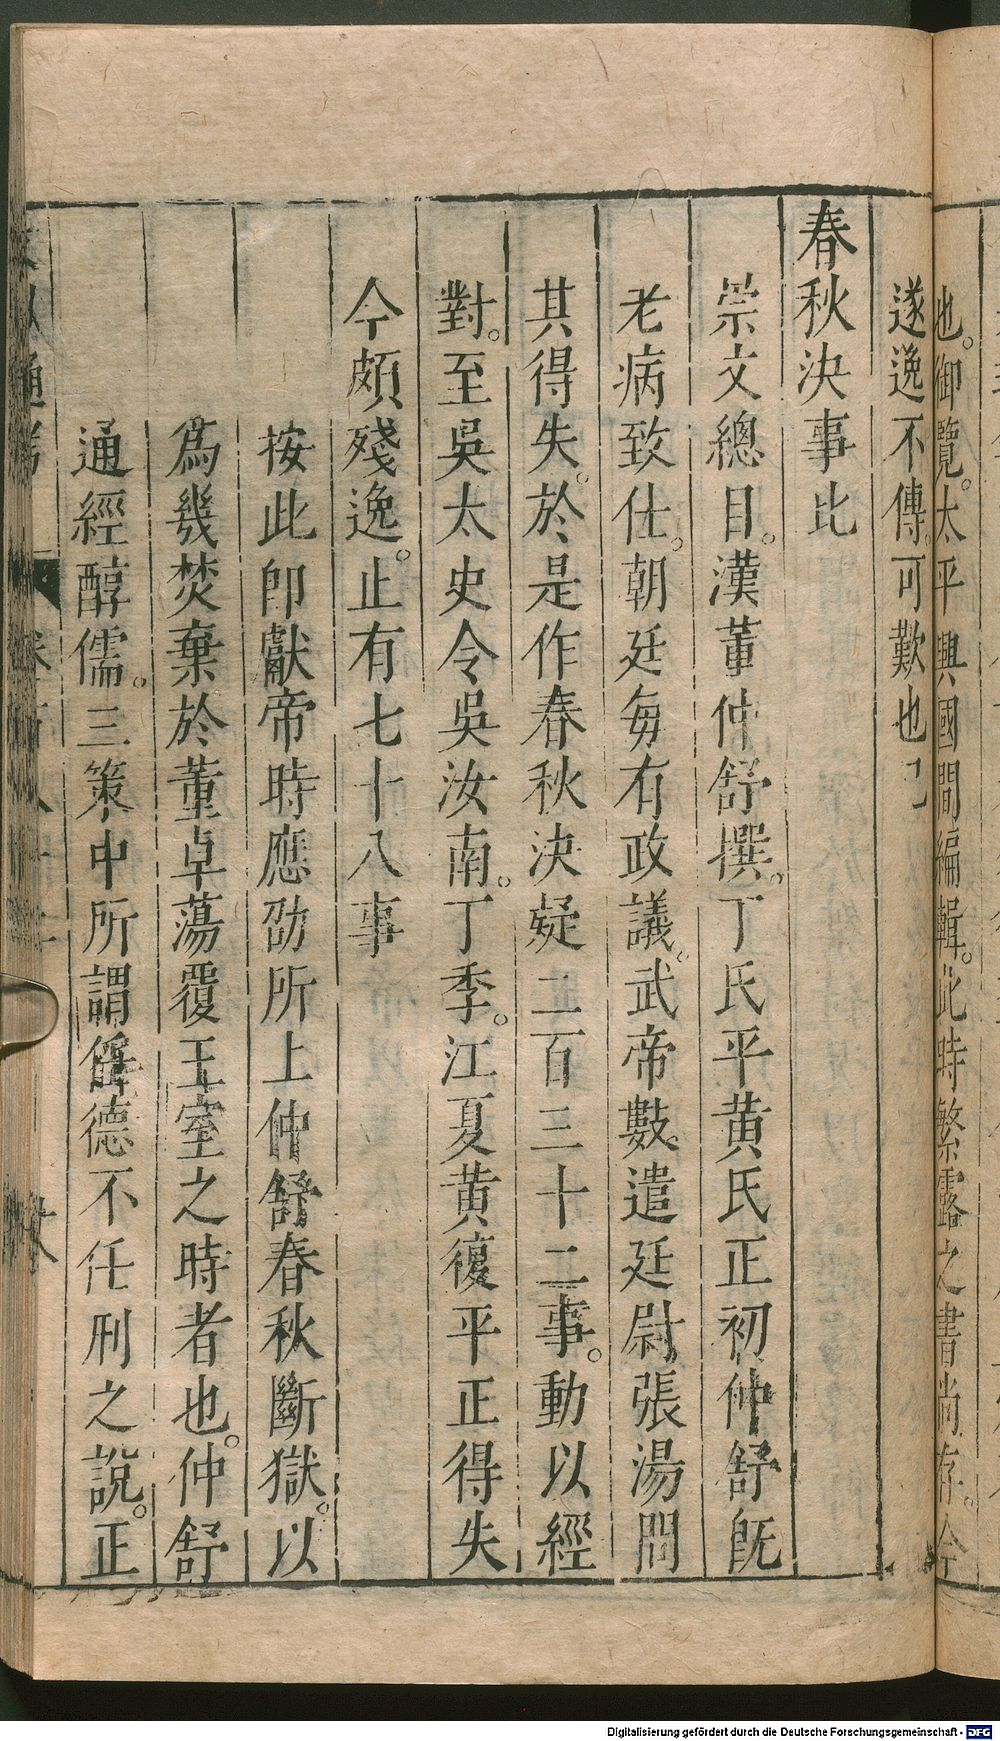 也。御覽。太平興國間編輯。此時繁露之書尚存。今
遂逸不傳。可歎也已
春秋決事比
崇文總目。漢董仲舒撰。丁氏平黃氏正初仲舒旣
老病致仕。朝廷每有政議。武帝數遣廷尉張湯問
其得失。於是作春秋決疑二百三十二事。動以經
對。至吳太史令吳汝南。丁季。江夏黃復平正得失
今頗殘逸。止有七十八事
按此卽獻帝時應劭所上仲舒春秋斷獄。以
爲幾焚棄於董卓蕩覆王室之時者也。仲舒
通經醇儒。三策中所謂任德不任刑之說。正
Digitalisierung gefördert durch die Deutsche Forschungsgemeinschaft - DFG